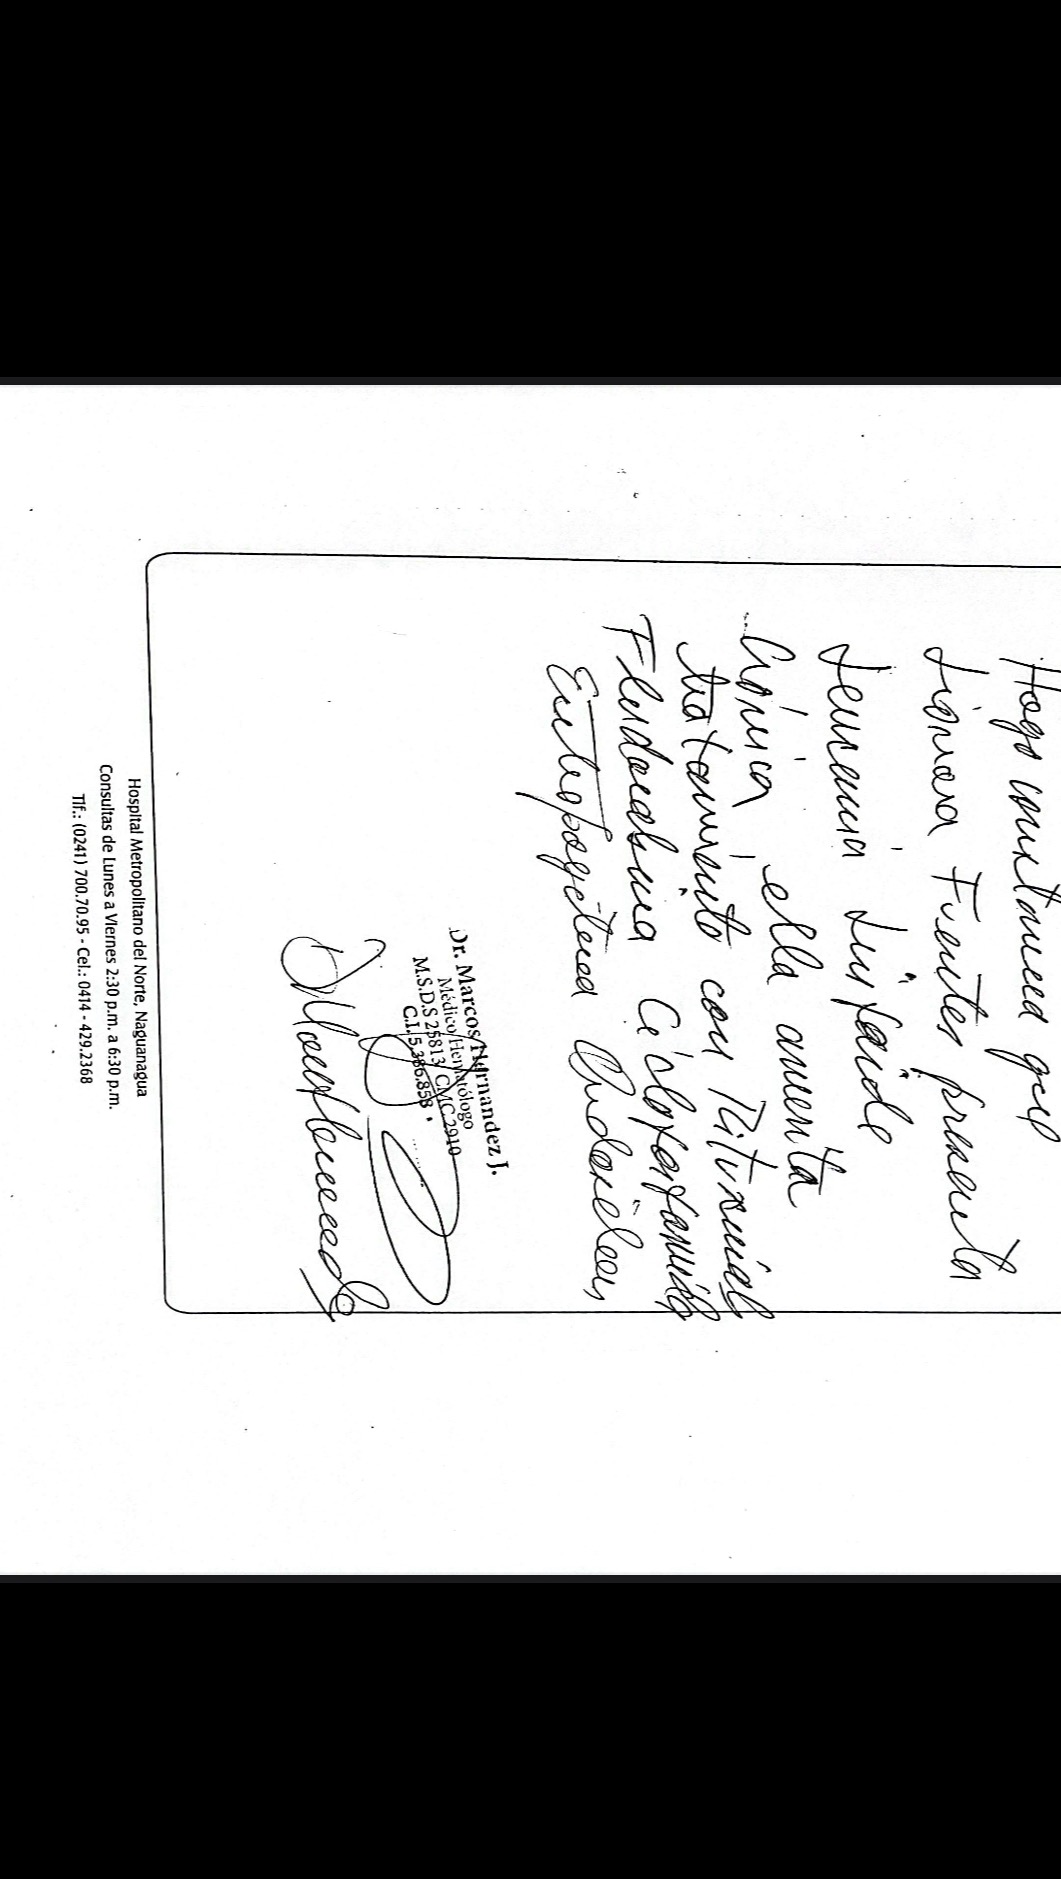 Hago constancia que
Liomara Fuentes presenta
Leucemia Linfoide
Crónica ella amerita
tratamiento con Rituximab
Fludarabina Ciclofosfamida
Dr. Marcos Hernandez J.
Médico Hematólogo
M.S.D.S 25813 CMC 2910
C.I. 5.386.858
Hospital Metropolitano del Norte, Naguanagua
Consultas de Lunes a Viernes 2:30 p.m. a 6:30 p.m.
Tlf.: (0241) 700.70.95 - Cel.: 0414 - 429.2368